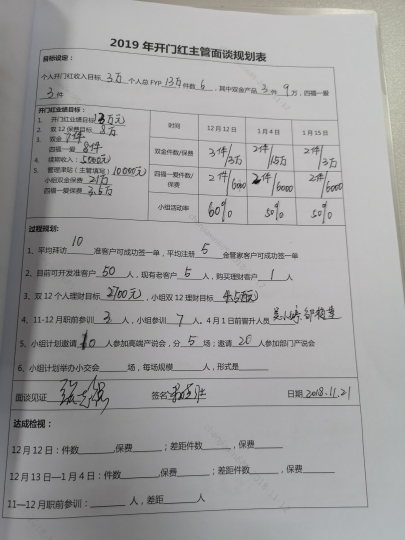 2019 年开门红主管面谈规划表
目标设定：
个人开门红收入目标 3万 个人总 FYP 13万 件数 6 ，其中双金产品 3 件 9 万，四福一爱
3 件
开门红业绩目标：
1. 开门红业绩目标 万元
2. 双 12 保费目标 8万
3. 双金 7件
四福一爱 8件
4. 续期收入：5000元
5. 管理津贴（主管填写）10000元
小组双金保费 21万
四福一爱保费 3.5万
时间 12 月 12 日 1 月 4 日 1 月 15 日
双金件数/保费 3件/3万 2件/15万 2件/3万
四福一爱件数/保费 2件/6000 2件/6000 2件/6000
小组活动率 60% 50% 50%
过程规划：
1、平均拜访 10 准客户可成功签一单，平均注册 5 金管家客户可成功签一单
2、目前可开发准客户 50 人，现有老客户 5 人，购买理财客户 1 人
3、双 12 个人理财目标 2700元 ，小组双 12 理财目标 4.5万元
4、11-12 月职前参训 3 人，小组参训 7 人。4 月 1 日前晋升人员
5、小组计划邀请 10 人参加高端产说会，分 5 场；邀请 20 人参加部门产说会
6、小组计划举办小交会 场，每场规模 人，形式是
面谈见证 签名 日期 2018.11.21
达成检视：
12 月 12 日：件数 ,保费 ；差距件数 ，保费
12 月 13 日—1 月 4 日：件数 ,保费 ；差距件数 ，保费
11—12 月职前参训： 人，差距 人